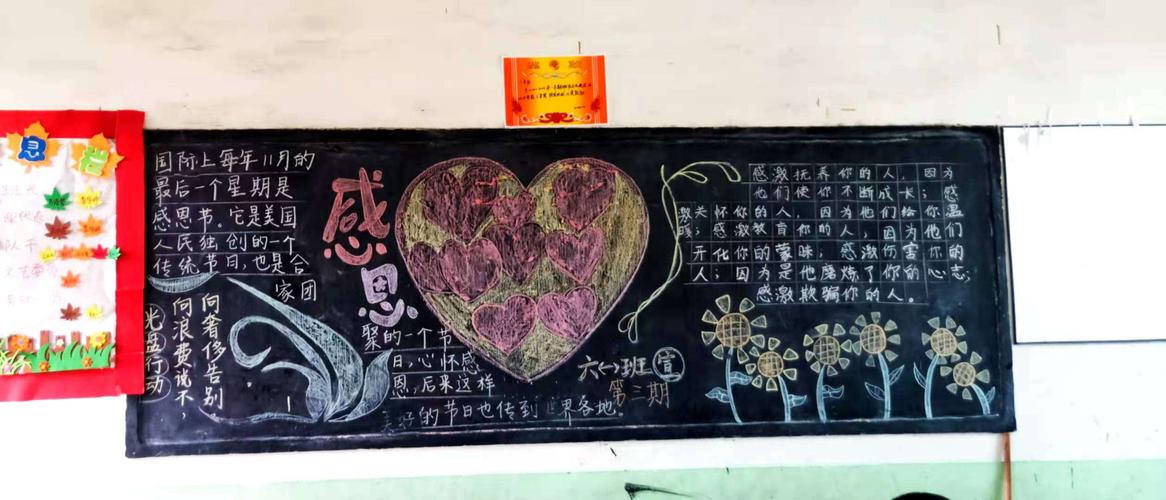 恩
国际上每年11月的
最后一个星期是
感恩节。它是美国
人民独创的一个
传统节日,也是合
家团
聚的一个节
日,心怀感
恩,后来这样
美好的节日也传到世界各地。
向奢侈告别
向浪费说不,
光盘行动
感恩
六(一)班 宣
第三期
感激抚养你的人,因为
他们使你不断成长;感
激关怀你的人,因为他们给你温
暖;感激教育你的人,因为他们
开化你的蒙昧,感激伤害你的
人;因为是他磨炼了你的心志;
感激欺骗你的人。